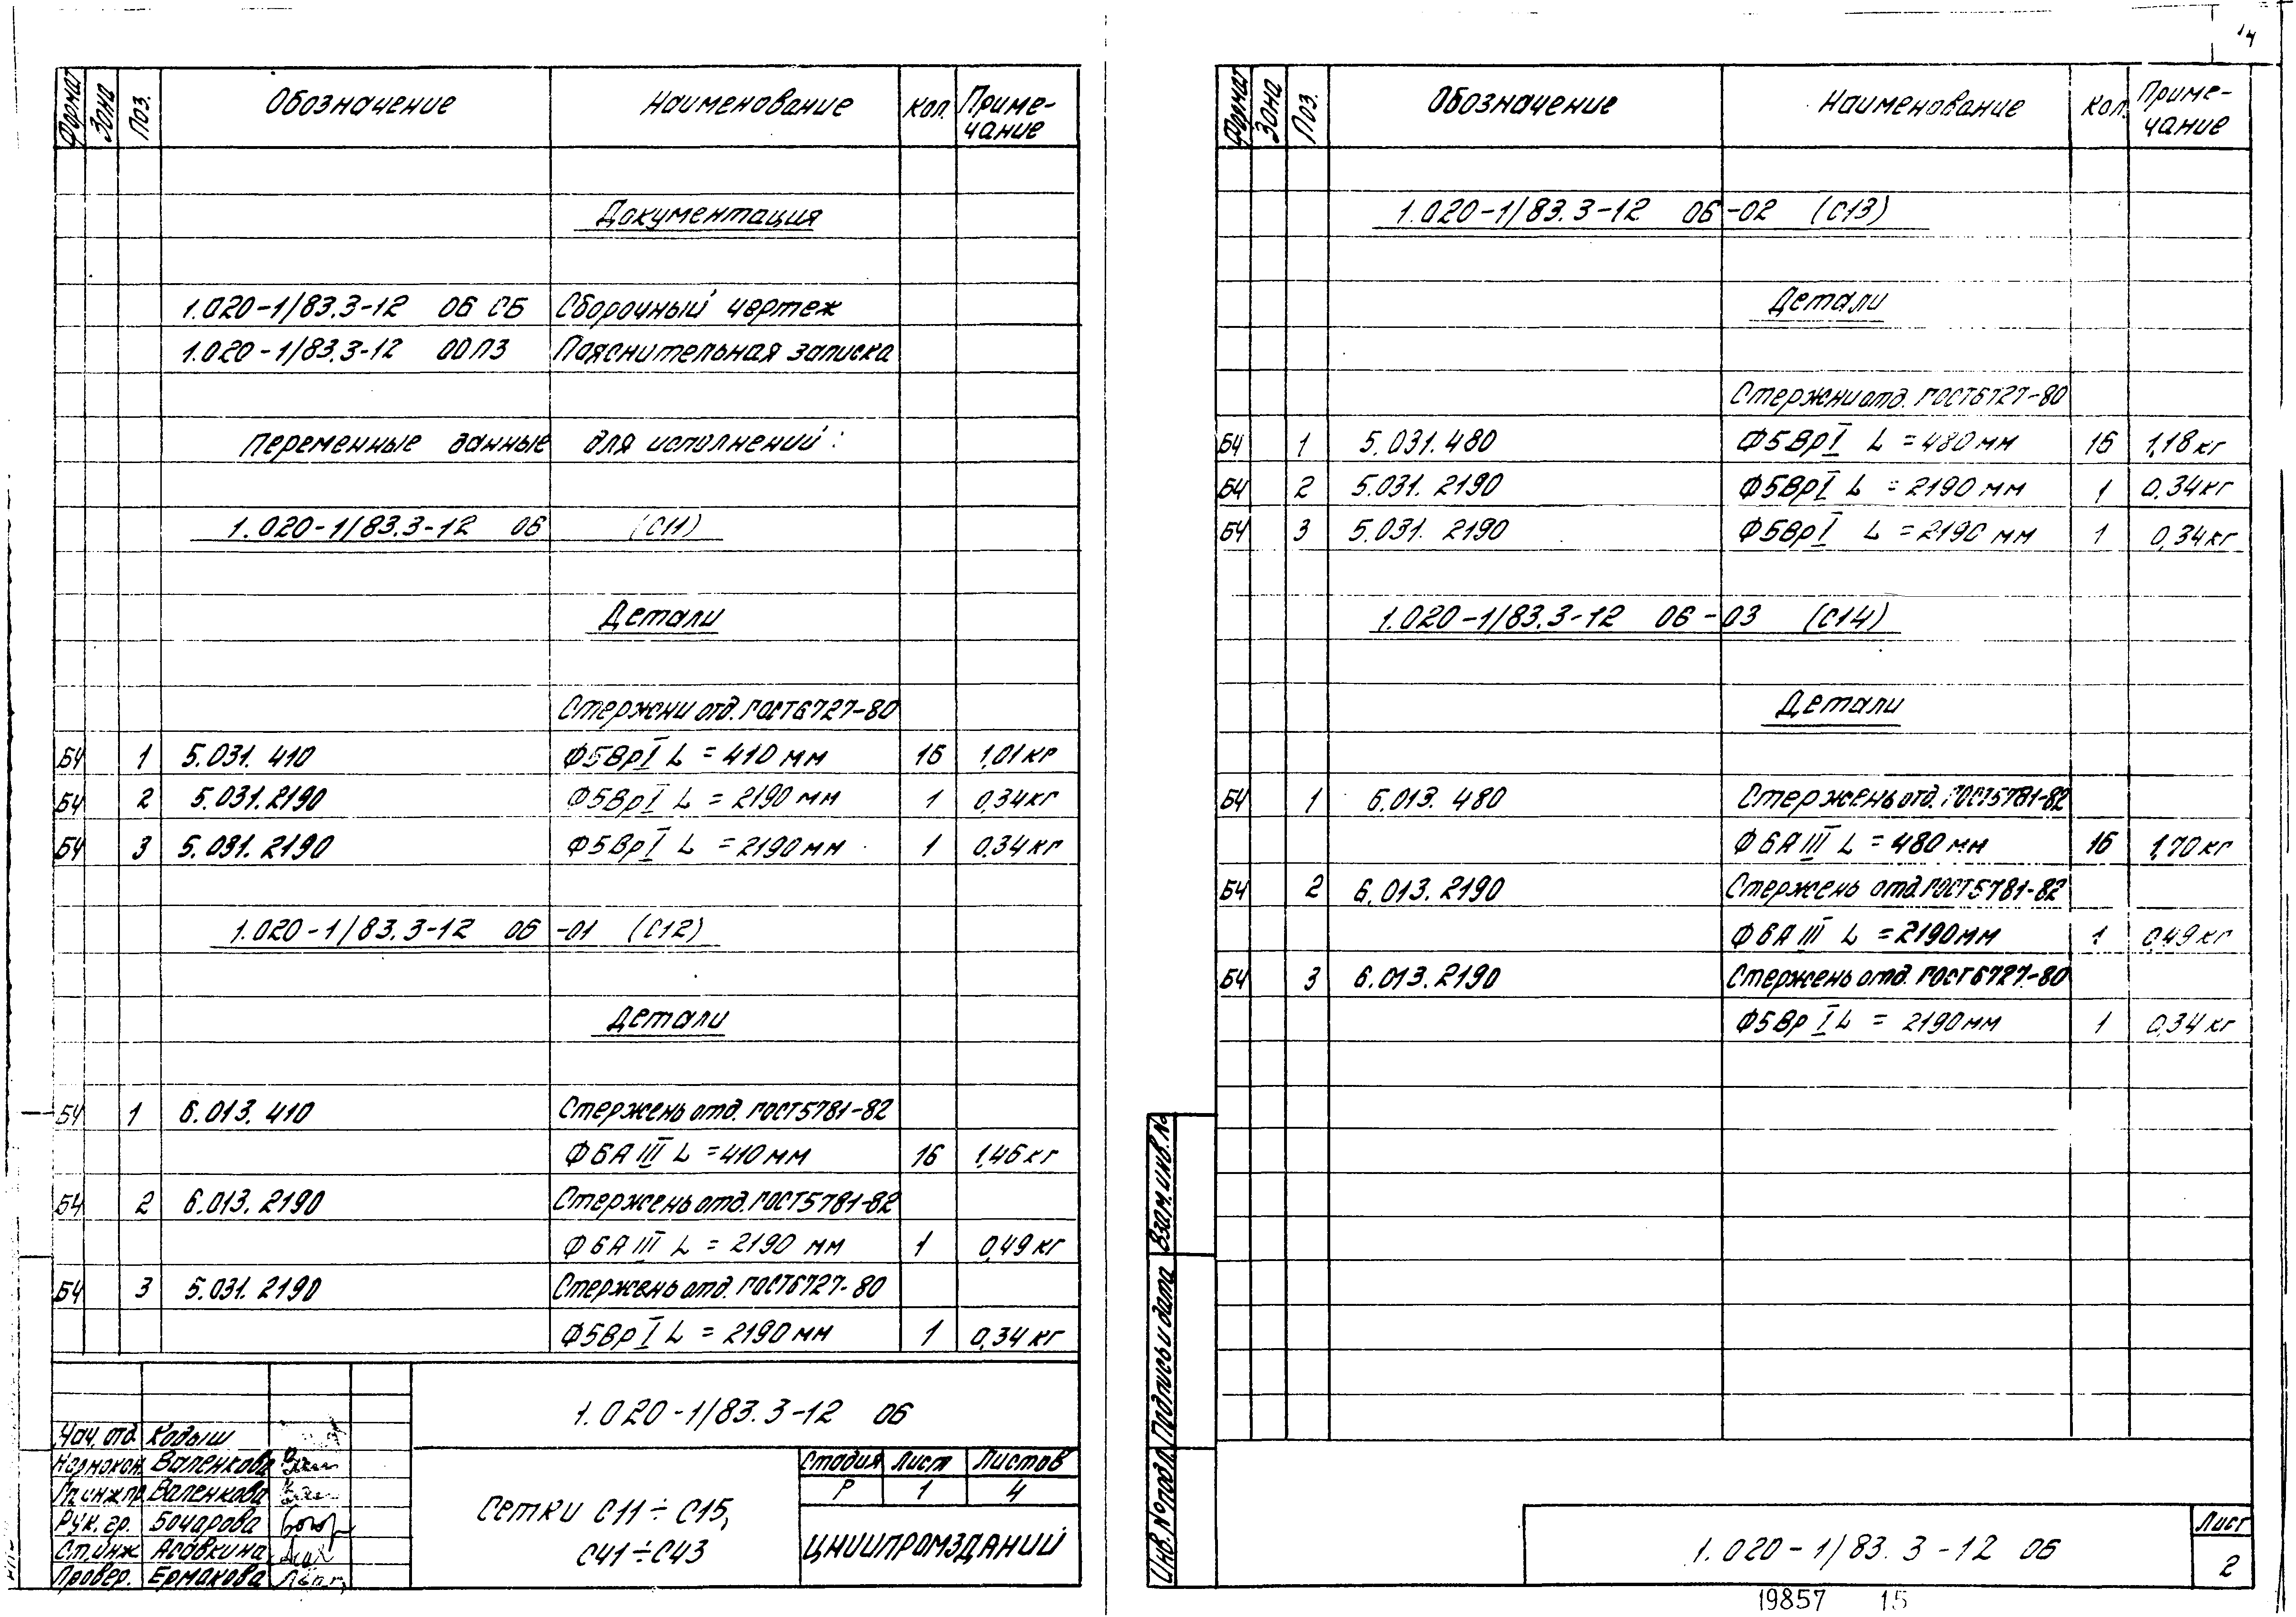 Формат Зона Поз. Обозначение Наименование Кол. Приме-
чание
Документация
1.020-1/83.3-12 06 СБ Сборочный чертеж
1.020-1/83.3-12 00ПЗ Пояснительная записка
Переменные данные для исполнений:
1.020-1/83.3-12 06 (С11)
Детали
Стержни отд. ГОСТ6727-80
БЧ 1 5.031.410 Ф5ВрI L=410мм 16 1,01кг
БЧ 2 5.031.2190 Ф5ВрI L=2190мм 1 0,34кг
БЧ 3 5.031.2190 Ф5ВрI L=2190мм 1 0.34кг
1.020-1/83.3-12 06-01 (С12)
Детали
БЧ 1 6.013.410 Стержень отд. ГОСТ5781-82
Ф6АIII L=410мм 16 1,46кг
БЧ 2 6.013.2190 Стержень отд. ГОСТ5781-82
Ф6АIII L=2190 мм 1 0,49кг
БЧ 3 5.031.2190 Стержень отд. ГОСТ6727-80
Ф5ВрI L=2190мм 1 0,34кг
1.020-1/83.3-12 06
Нач. отд. Кодыш
Нормокон. Валенкова
Гл.инж.пр. Валенкова
Рук. гр. Бочарова
Ст.инж Асавкина
Провер. Ермакова
Сетки С11÷С15,
С41÷С43
Стадия Лист Листов
Р 1 4
ЦНИИПРОМЗДАНИЙ
14
Формат Зона Поз. Обозначение Наименование Кол. Приме-
чание
1.020-1/83.3-12 06-02 (С13)
Детали
Стержни отд. ГОСТ6727-80
БЧ 1 5.031.480 Ф5ВрI L=480мм 16 1,18кг
БЧ 2 5.031.2190 Ф5ВрI L=2190мм 1 0,34кг
БЧ 3 5.031.2190 Ф5ВрI L=2190 мм 1 0,34кг
1.020-1/83.3-12 06-03 (С14)
Детали
БЧ 1 6.013.480 Стержень отд. ГОСТ5781-82
Ф6АIII L=480мм 16 1,70кг
БЧ 2 6.013.2190 Стержень отд. ГОСТ5781-82
Ф6АIII L=2190мм 1 0,49кг
БЧ 3 6.013.2190 Стержень отд. ГОСТ6727-80
Ф5ВрI L=2190мм 1 0,34кг
Инв.№подл. Подпись и дата Взам.инв.№
1.020-1/83.3-12 06
Лист
2
19857 15